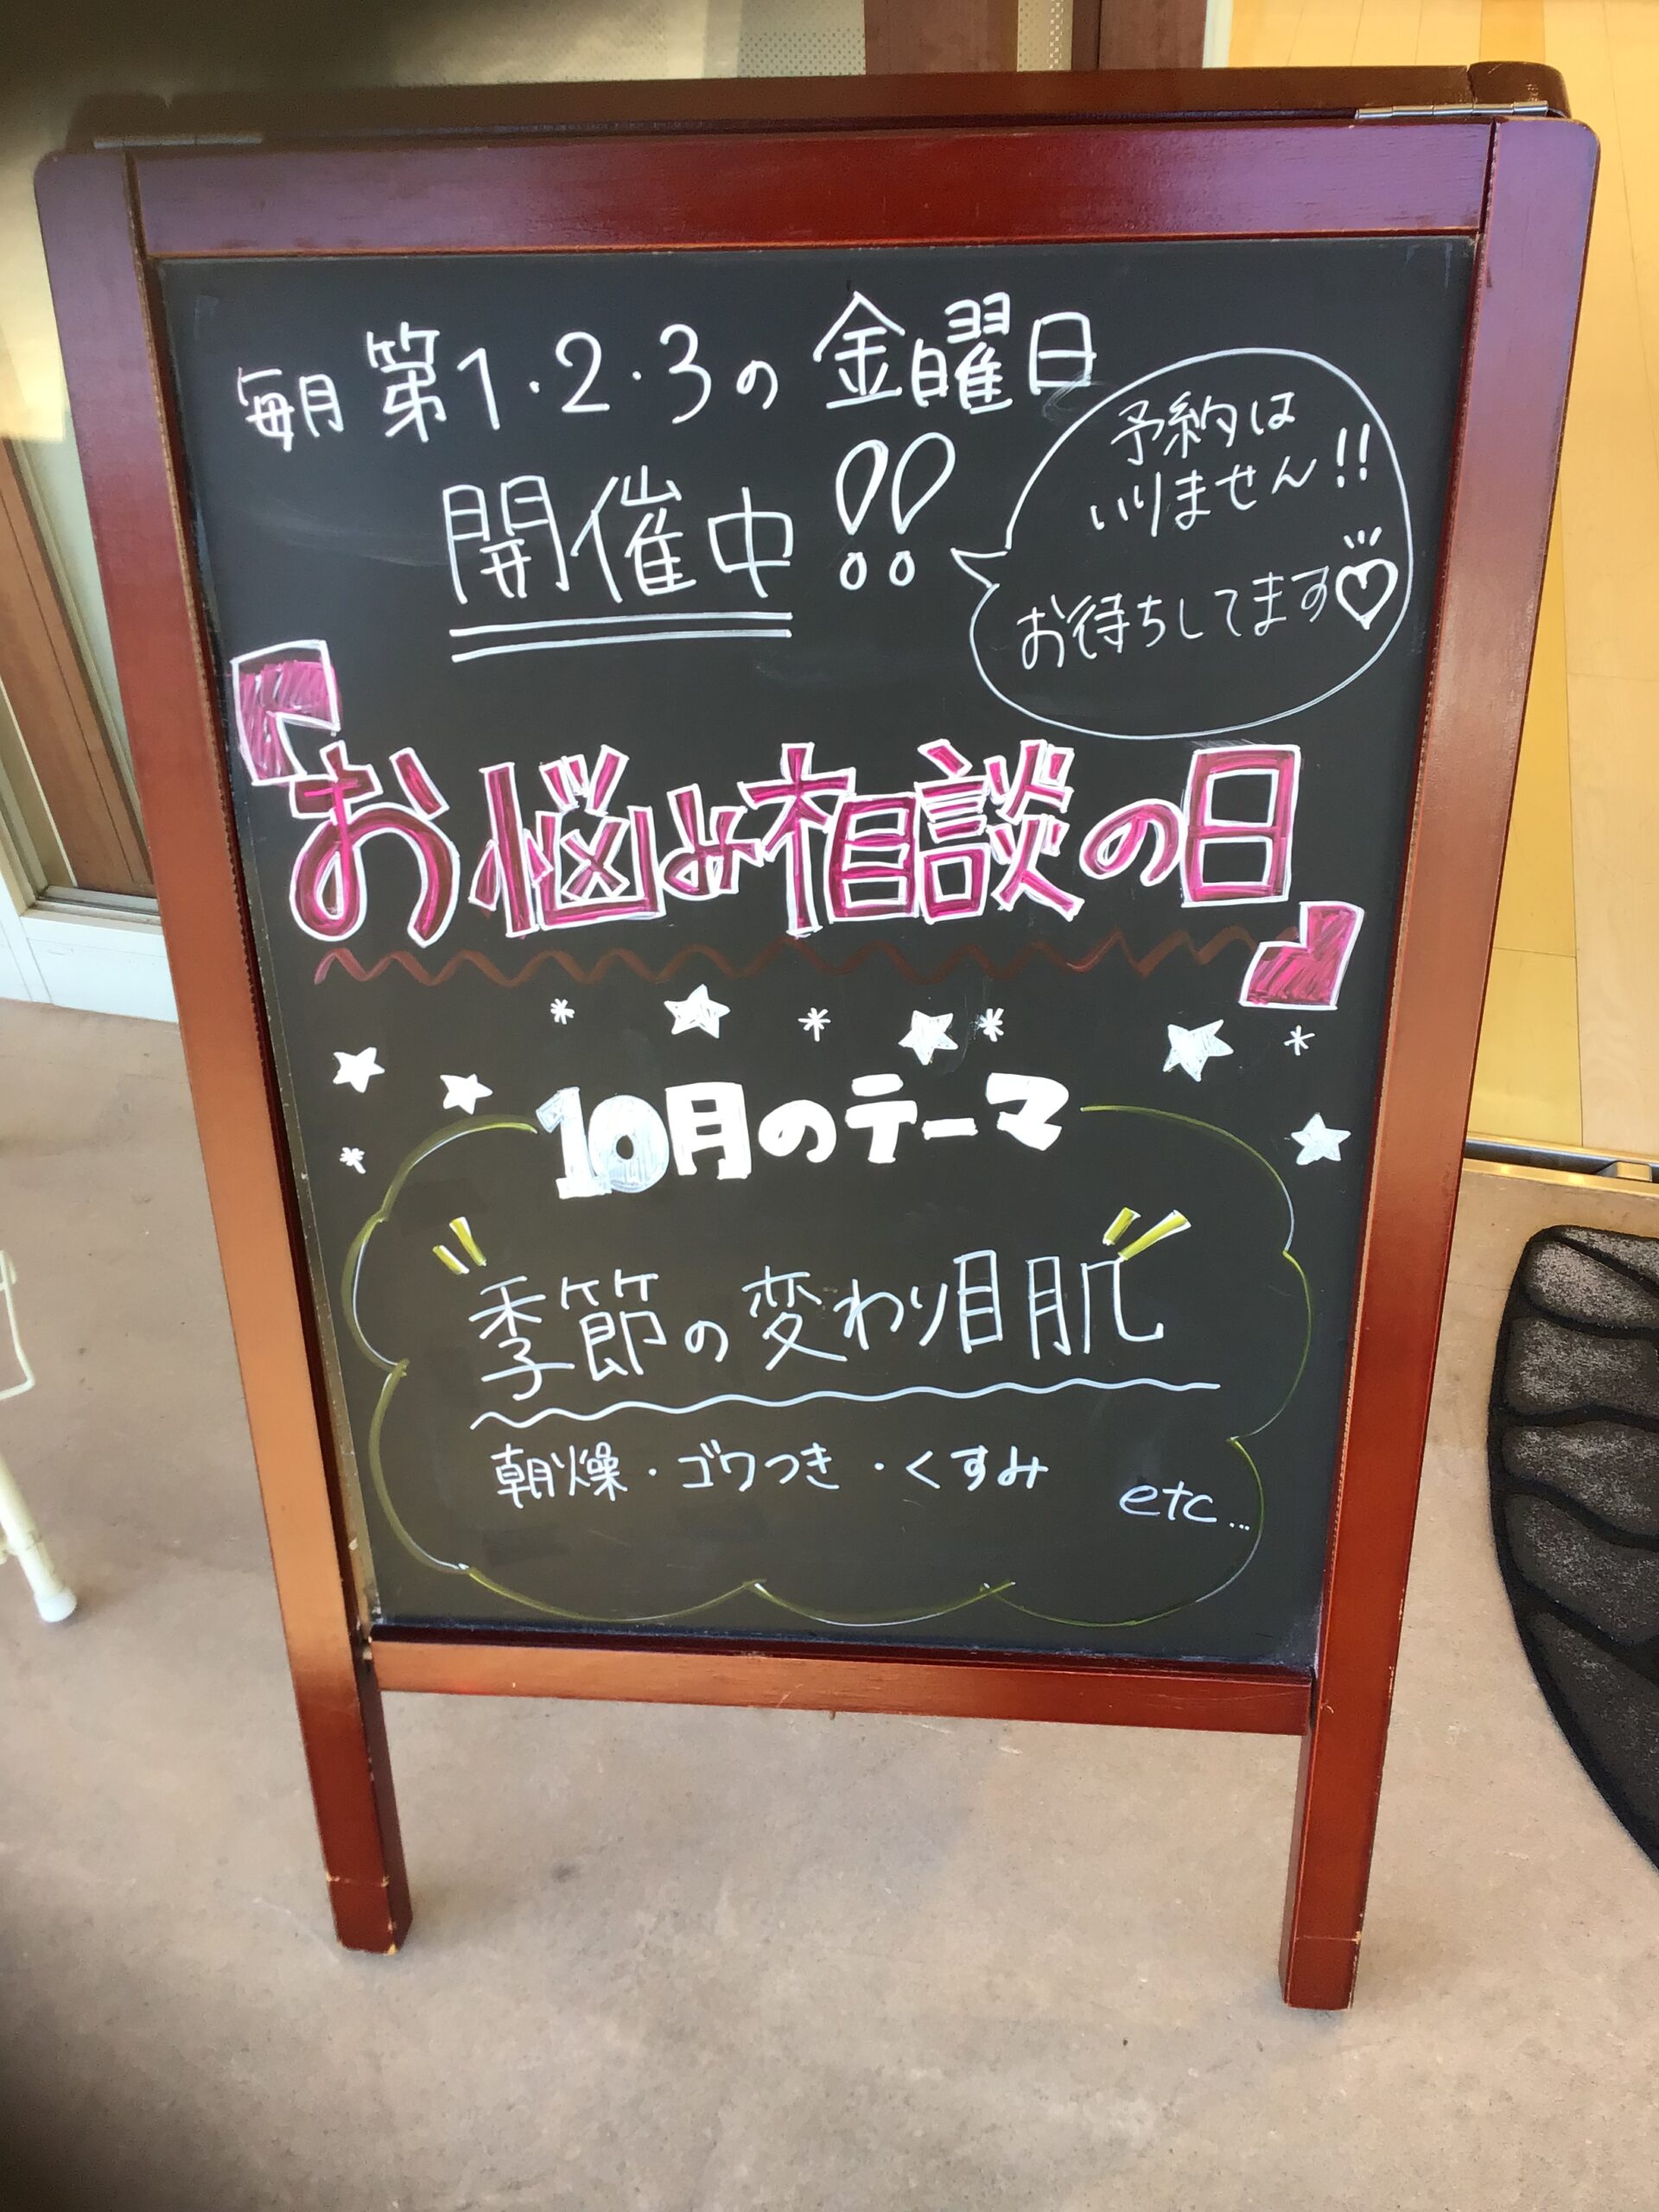 毎月 第1・2・3の 金曜日
開催中!!
予約は
いりません!!
お待ちしてます♡
『お悩み相談の日』
10月のテーマ
季節の変わり目肌
朝燥・ゴワつき・くすみ etc...